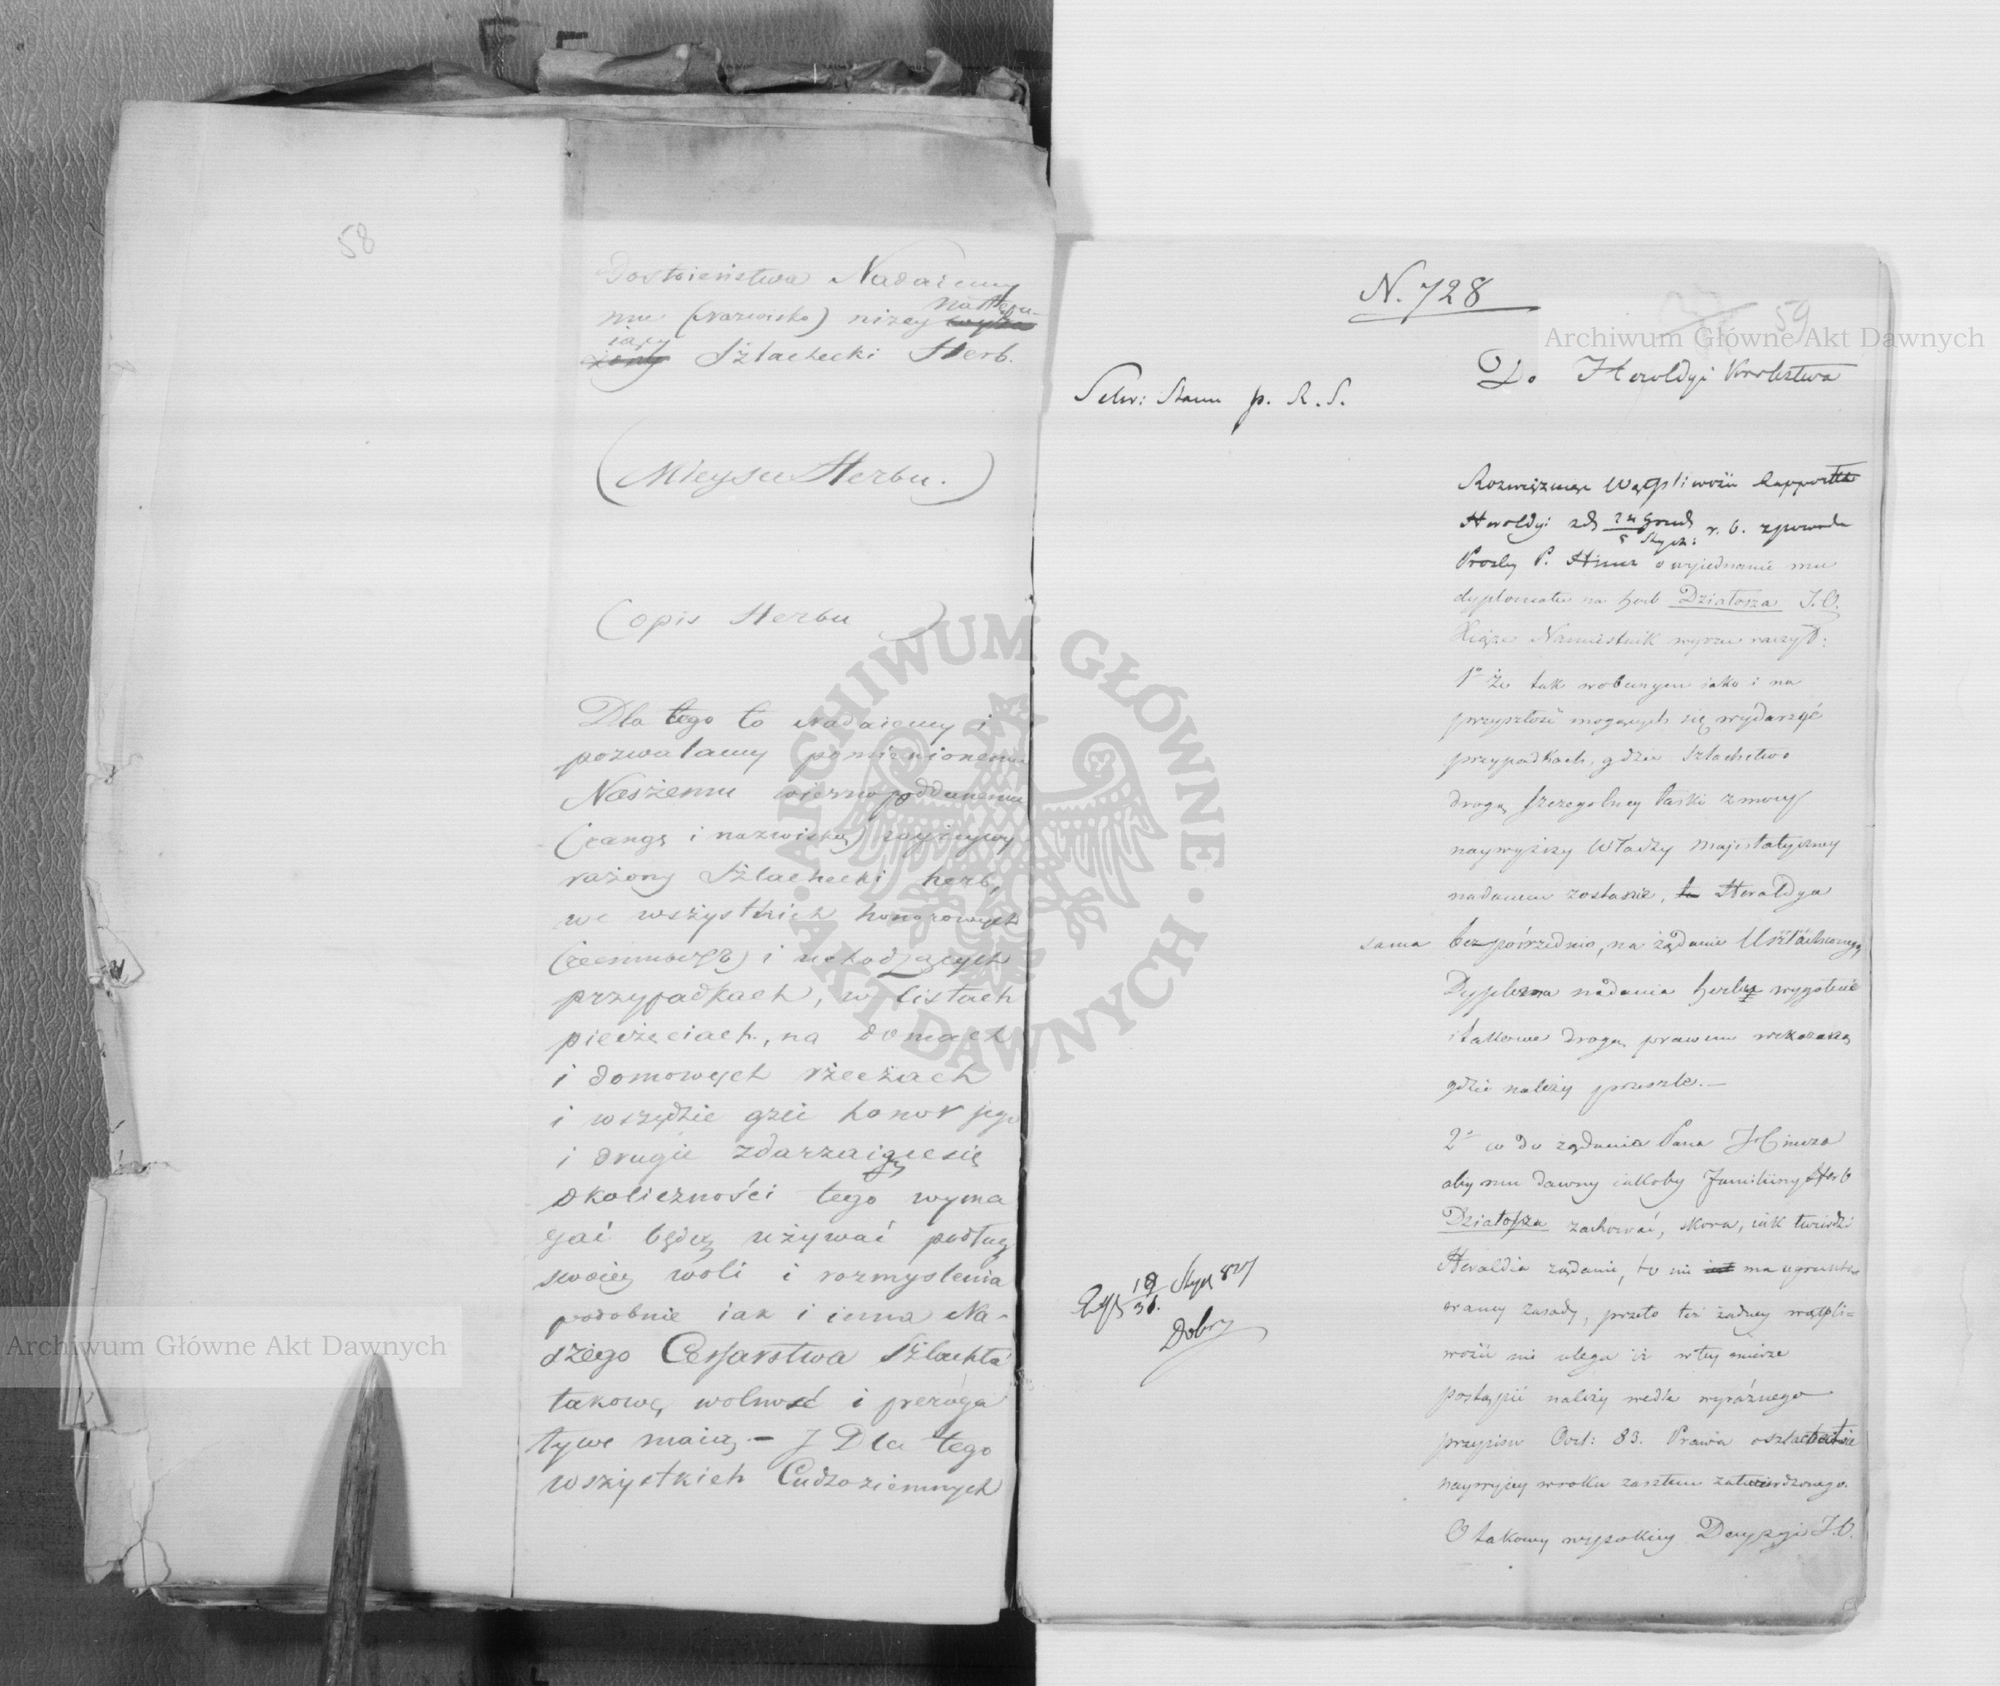 58
Dostoieństwa Nadaiemy
mu (Nazwisko) niżey następu-
iący Szlachecki Herb.
(Mieysce Herbu.)
(opis Herbu)
Dla tego to nadaiemy i
pozwalamy pomienionemu
Naszemu wiernopoddanemu
(rangę i nazwisko) wyżey wy
rażony Szlachecki herb,
we wszystkich honorowych
i uchodzących
przypadkach, w listach
pieczęciach, na domach
i domowych rzeczach
i wszędzie gdzie honor jego
i drugie zdarzaiące się
okoliczności tego wyma
gać będą używać podług
swoiey woli i rozmyslenia
podobnie iak i inna Na-
szego Cesarstwa Szlachta
takową wolność i preroga
tywe maią - I Dla tego
wszystkich Cudzoziemnych
N. 728
59
Do Heroldyi Królestwa
Sekr: Stanu p. R. S.
Rozwiązując Wątpliwości Rapportu
Heroldyi z d. 24 Grud / 5 Stycz: r. b. z powodu
Prośby P. Hincz o wyjednanie mu
dyplomatu na herb Działosza J.O.
Xiąże Namiestnik wyrzec raczył:
1o że tak w obecnym iako i na
przyszłość mogących się wydarzyć
przypadkach, gdzie Szlachetwo
drogą szczególney łaski z mocy
naywyższy Władzy Majestatyczney
nadanem zostanie, Heroldya
sama bezpośrednio, na żądanie Uszlachconego,
Dyploma nadania herbu wygotuie
i takowe drogą prawem wskazaną
gdzie należy prześle.-
2o co do żądania Pana Hincza
aby mu dawny iakoby familiiny Herb
Działosza zachować, skoro, iak twierdzi
Heroldia żądanie to nie ma ugrunto
waney zasady, przeto też żadney wątpli=
wości nie ulega iż w tey mierze
postąpić należy wedle wyraźnego
przepisu Art: 83. Prawa o szlachectwie
O takowey wysokiey Decyzyi J.O.
Exp 19/31. Stycz 827
Dobry
Archiwum Główne Akt Dawnych
Archiwum Główne Akt Dawnych
ARCHIWUM GŁÓWNE
AKT DAWNYCH